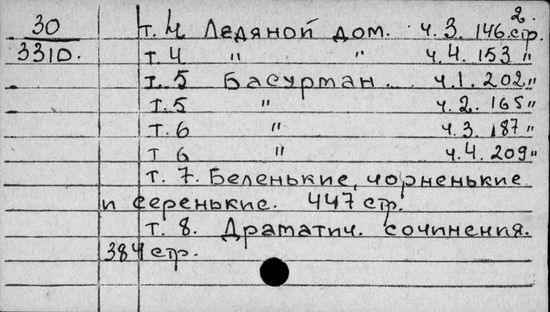 2.
30 т. 4 Ледяной дом. ч. 3. 146 стр.
3310. т. 4 " " ч. 4. 153 "
т. 5 Басурман ч. 1. 202 "
т. 5 " ч. 2. 165 "
т. 6 " ч. 3. 187 "
т. 6 " ч. 4. 209 "
т. 7. Беленькие, чорненькие
и серенькие. 447 стр.
т. 8. Драматич. сочинения.
384 стр.